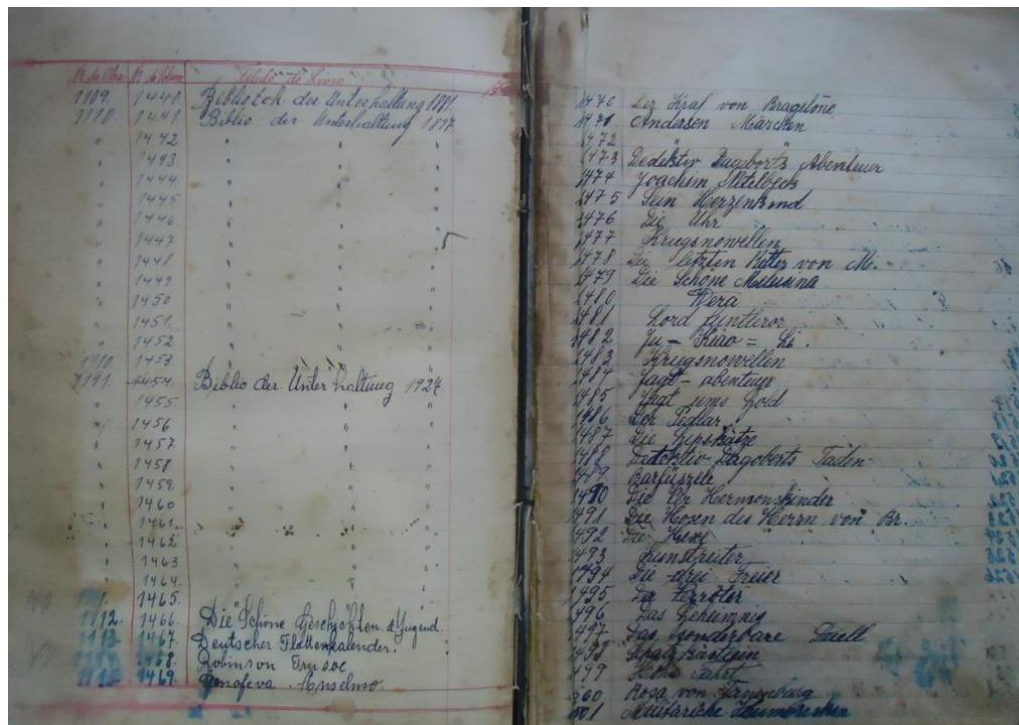 Nr. da Obra Nr. do Volume Titulo do Livro
1109. 1440. Bibliotek der Unterhaltung 1891.
1110. 1441. Biblio der Unterhaltung 1897.
" 1442 " "
" 1443 " "
" 1444 " "
" 1445 " "
" 1446 " "
" 1447 " "
" 1448 " "
" 1449 " "
" 1450 " "
" 1451. " "
" 1452 " "
1110. 1453 " "
1111. 1454. Biblio der Unterhaltung 1924.
" 1455. " "
" 1456 " "
" 1457 " "
" 1458. " "
" 1459. " "
" 1460 " "
" 1461. " "
" 1462. " "
" 1463 " "
" 1464. " "
1465. " "
1112. 1466. Die Schöne d. Jugend.
1113. 1467. Deutscher
1468. Robinson Crusoe
1469 Genofeva Anselmo.
1470 Der Graf von Bragelone
1471 Andersen Märchen
1472 "
1473 Dedektiv Dagoberts Abenteuer
1474 Joachim Nettelbeck
1475 Sein Herzenkind
1476 Die Uhr
1477 Kriegsnowellen
1478 Die letzten Ritter von M.
1479 Die Schöne Melusina
1480 Wera
1481 Lord
1482 Ju - Kiao = Li.
1483 Kriegsnowellen
1484 Jagt - abenteuer
1485 Jagt ums Gold
1486 Der Pedlar
1487 Die Gipskatze
1488 Dedektiv Dagoberts Taden
1489 Barfüszele
1490 Die Hermonskinder
1491 Die Hosen des Herrn von Br.
1492 Die Hexe
1493 Kunstreiter
1494 Die drei Freier
1495 Der
1496 Das Geheimnis
1497 Das sonderbare Duell
1498
1499 Hohe Fahrt
Rosa von Tannenburg